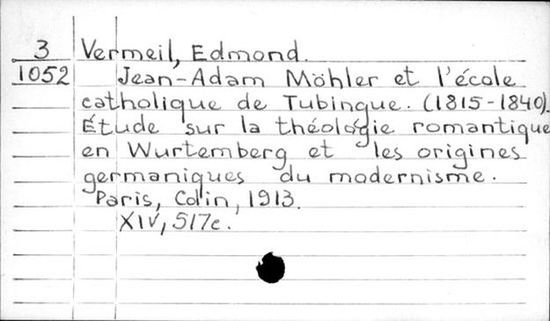 3 Vermeil, Edmond.
1052 Jean-Adam Möhler et l'école
catholique de Tubingue. (1815-1840).
Étude sur la théologie romantique
en Wurtemberg et les origines
germaniques du modernisme.
Paris, Colin, 1913.
XIV, 517c.